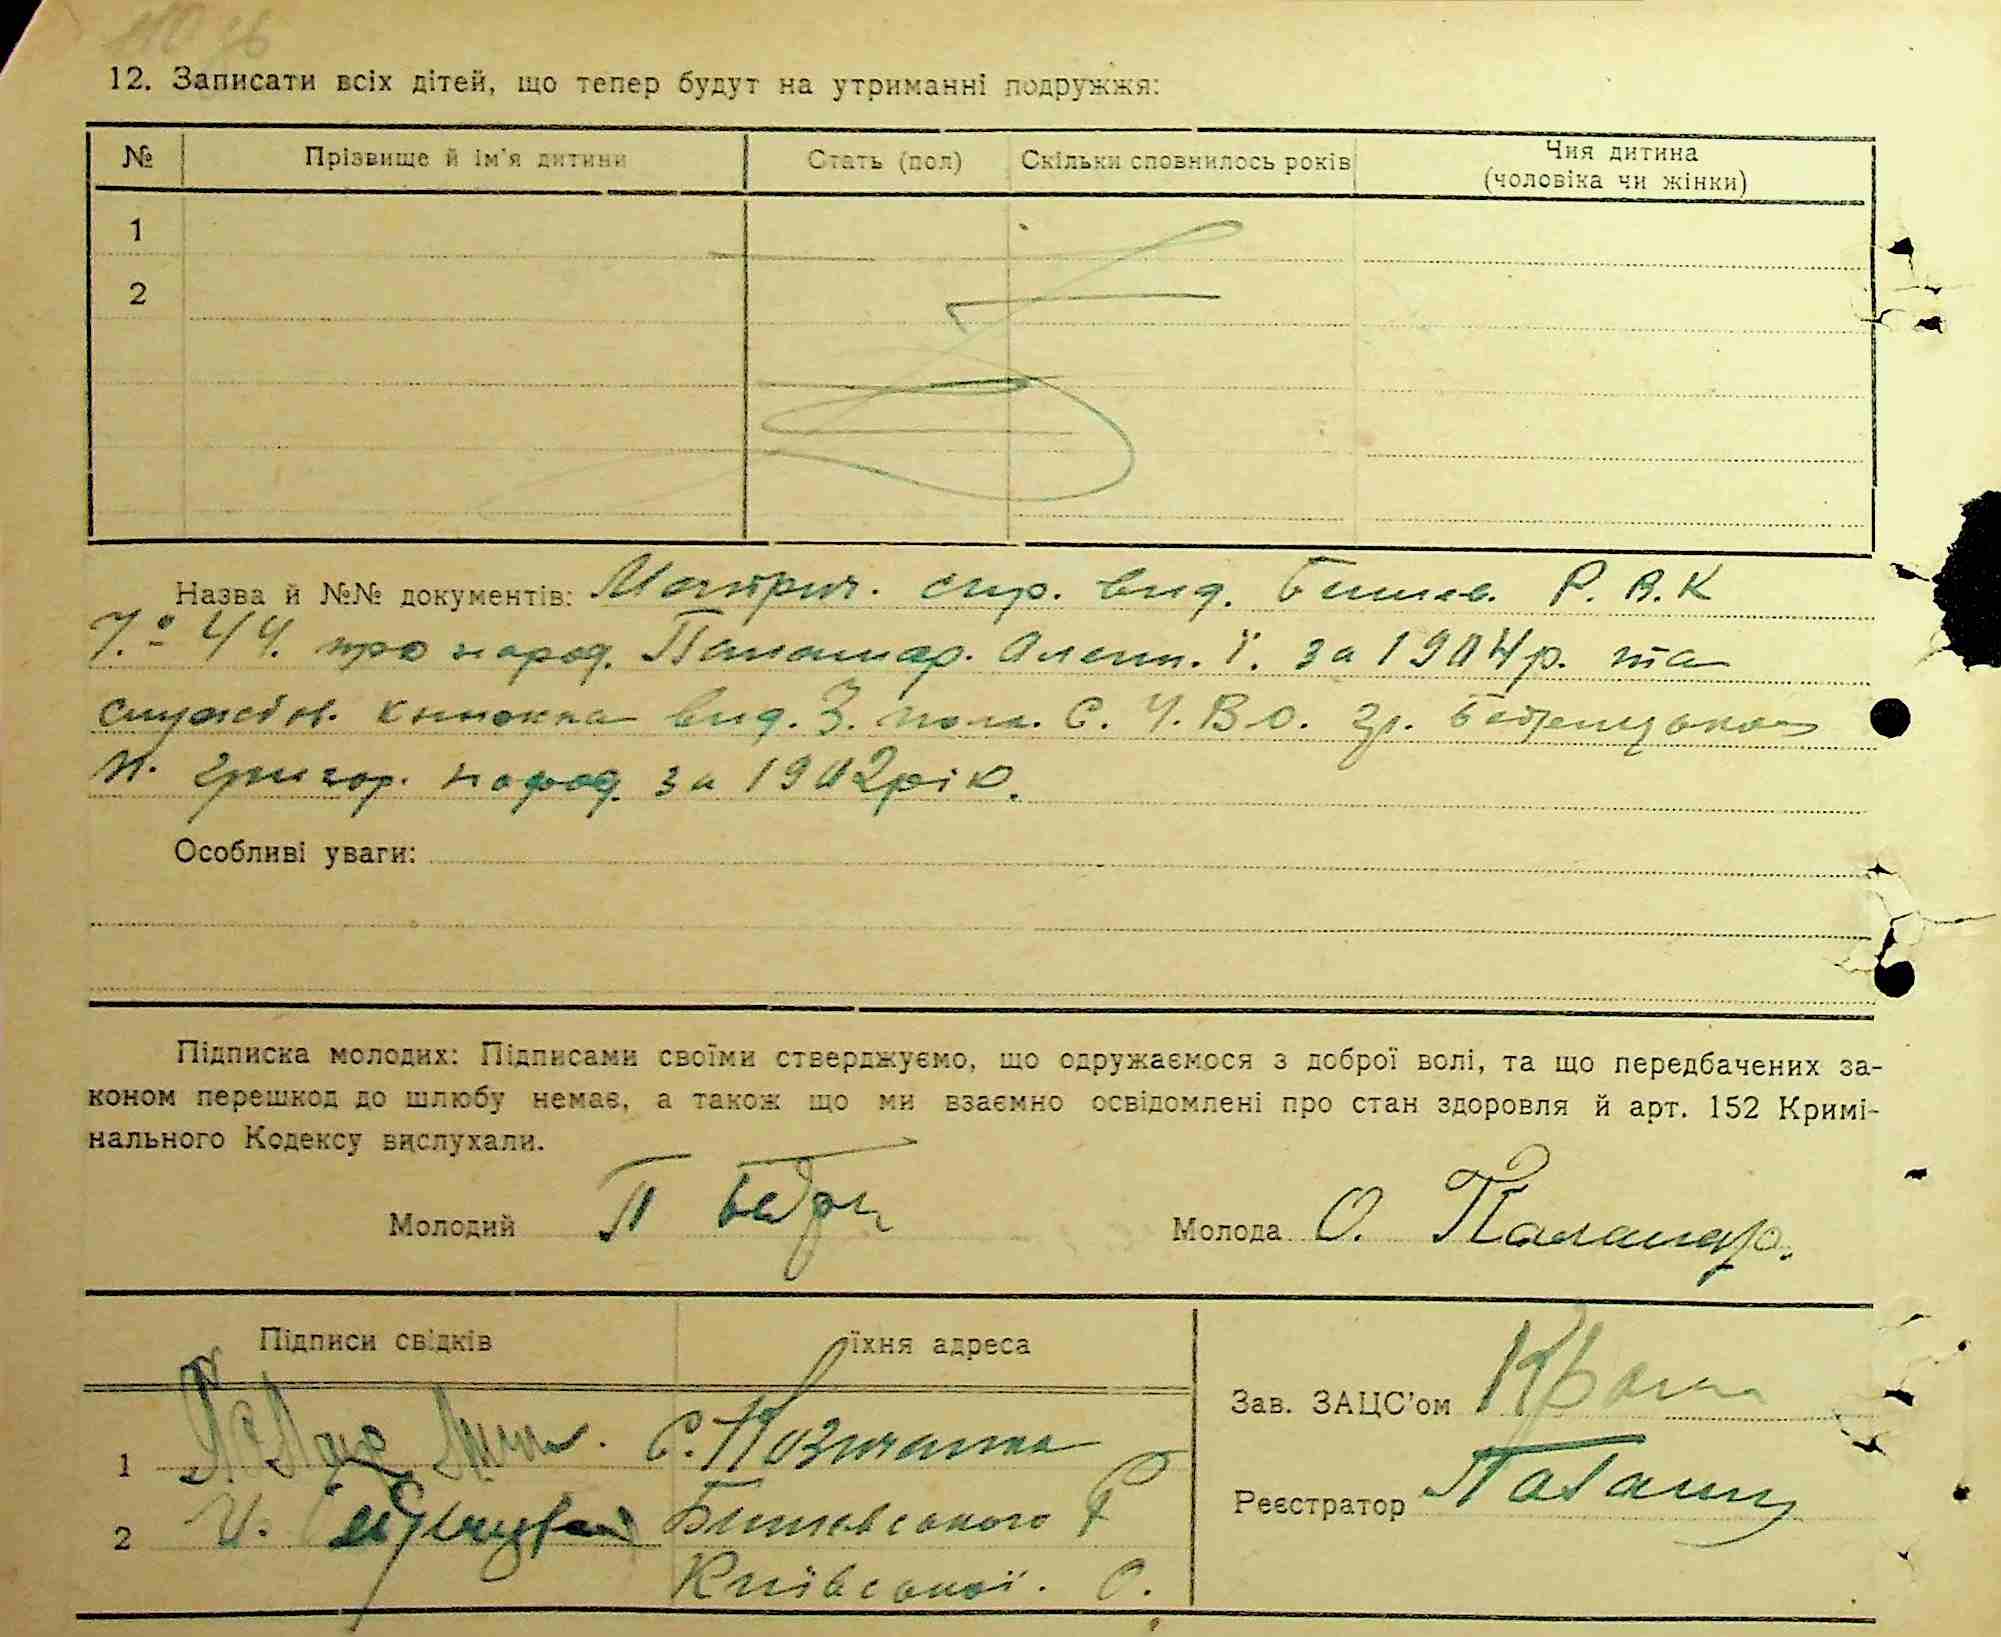 12. Записати всіх дітей, що тепер будут на утриманні подружжя:
№ Прізвище й ім'я дитини Стать (пол) Скільки сповнилось років Чия дитина (чоловіка чи жінки)
1
2
Назва й №№ документів: Метрич. спр. вид. Бишев. Р. В. К
44. про народ. Паламар. Олекс. Ї. за 1904р. та
службов. книжка вид. 3. полк. С. Ч. В О. гр.
П. Григор. народ. за 1902рік.
Особливі уваги:
Підписка молодих: Підписами своїми стверджуємо, що одружаємося з доброї волі, та що передбачених за-
коном перешкод до шлюбу немає, а також що ми взаємно освідомлені про стан здоровля й арт. 152 Кримі-
нального Кодексу вислухали.
Молодий П Молода О. Паламар.
Підписи свідків їхня адреса
Зав. ЗАЦС'ом
1 с.
Реєстратор
2 Бишевського Р
Київської. О.